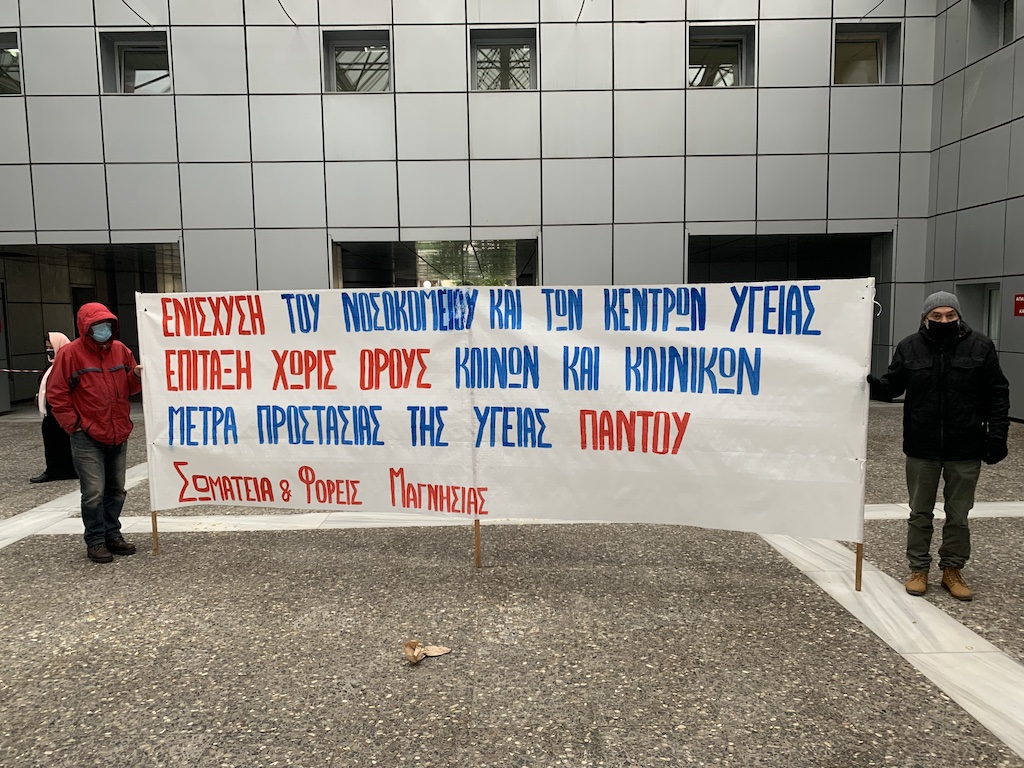 ΕΝΙΣΧΥΣΗ ΤΟΥ ΝΟΣΟΚΟΜΕΙΟΥ ΚΑΙ ΤΩΝ ΚΕΝΤΡΩΝ ΥΓΕΙΑΣ
ΕΠΙΤΑΞΗ ΧΩΡΙΣ ΟΡΟΥΣ ΚΛΙΝΩΝ ΚΑΙ ΚΛΙΝΙΚΩΝ
ΜΕΤΡΑ ΠΡΟΣΤΑΣΙΑΣ ΤΗΣ ΥΓΕΙΑΣ ΠΑΝΤΟΥ
ΣΩΜΑΤΕΙΑ & ΦΟΡΕΙΣ ΜΑΓΝΗΣΙΑΣ